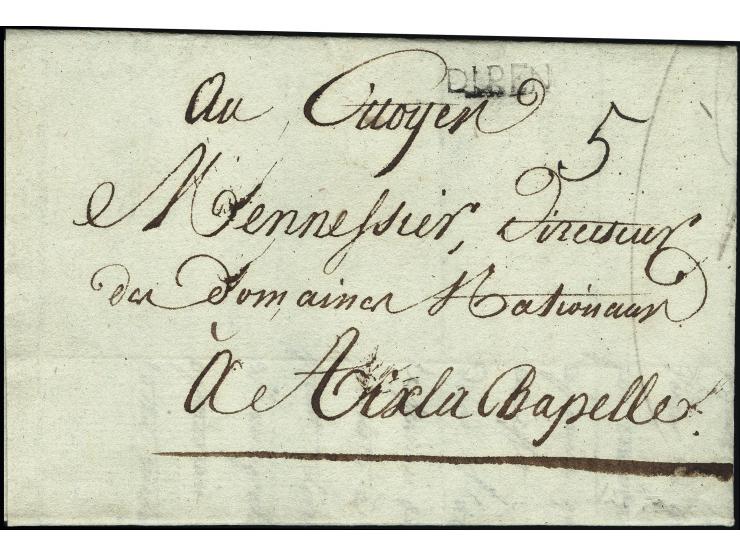 DÜREN
Au Citoyen
5
Mennessier, Directeur
des Domaines Nationaux
à Aix la Chapelle.